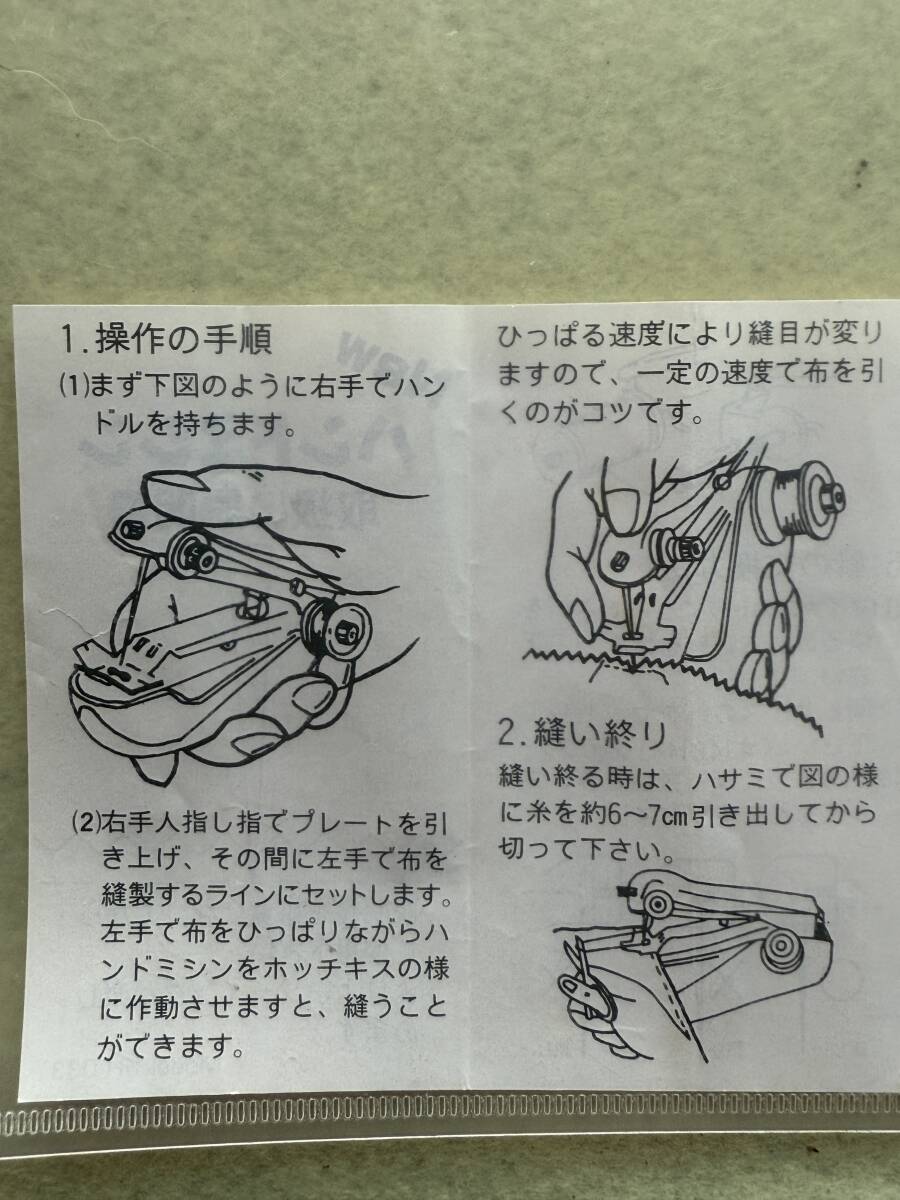 1.操作の手順
⑴まず下図のように右手でハン
ドルを持ちます。
⑵右手人指し指でプレートを引
き上げ、その間に左手で布を
縫製するラインにセットします。
左手で布をひっぱりながらハ
ンドミシンをホッチキスの様
に作動させますと、縫うこと
ができます。
ひっぱる速度により縫目が変り
ますので、一定の速度で布を引
くのがコツです。
2.縫い終り
縫い終る時は、ハサミで図の様
に糸を約6〜7cm引き出してから
切って下さい。